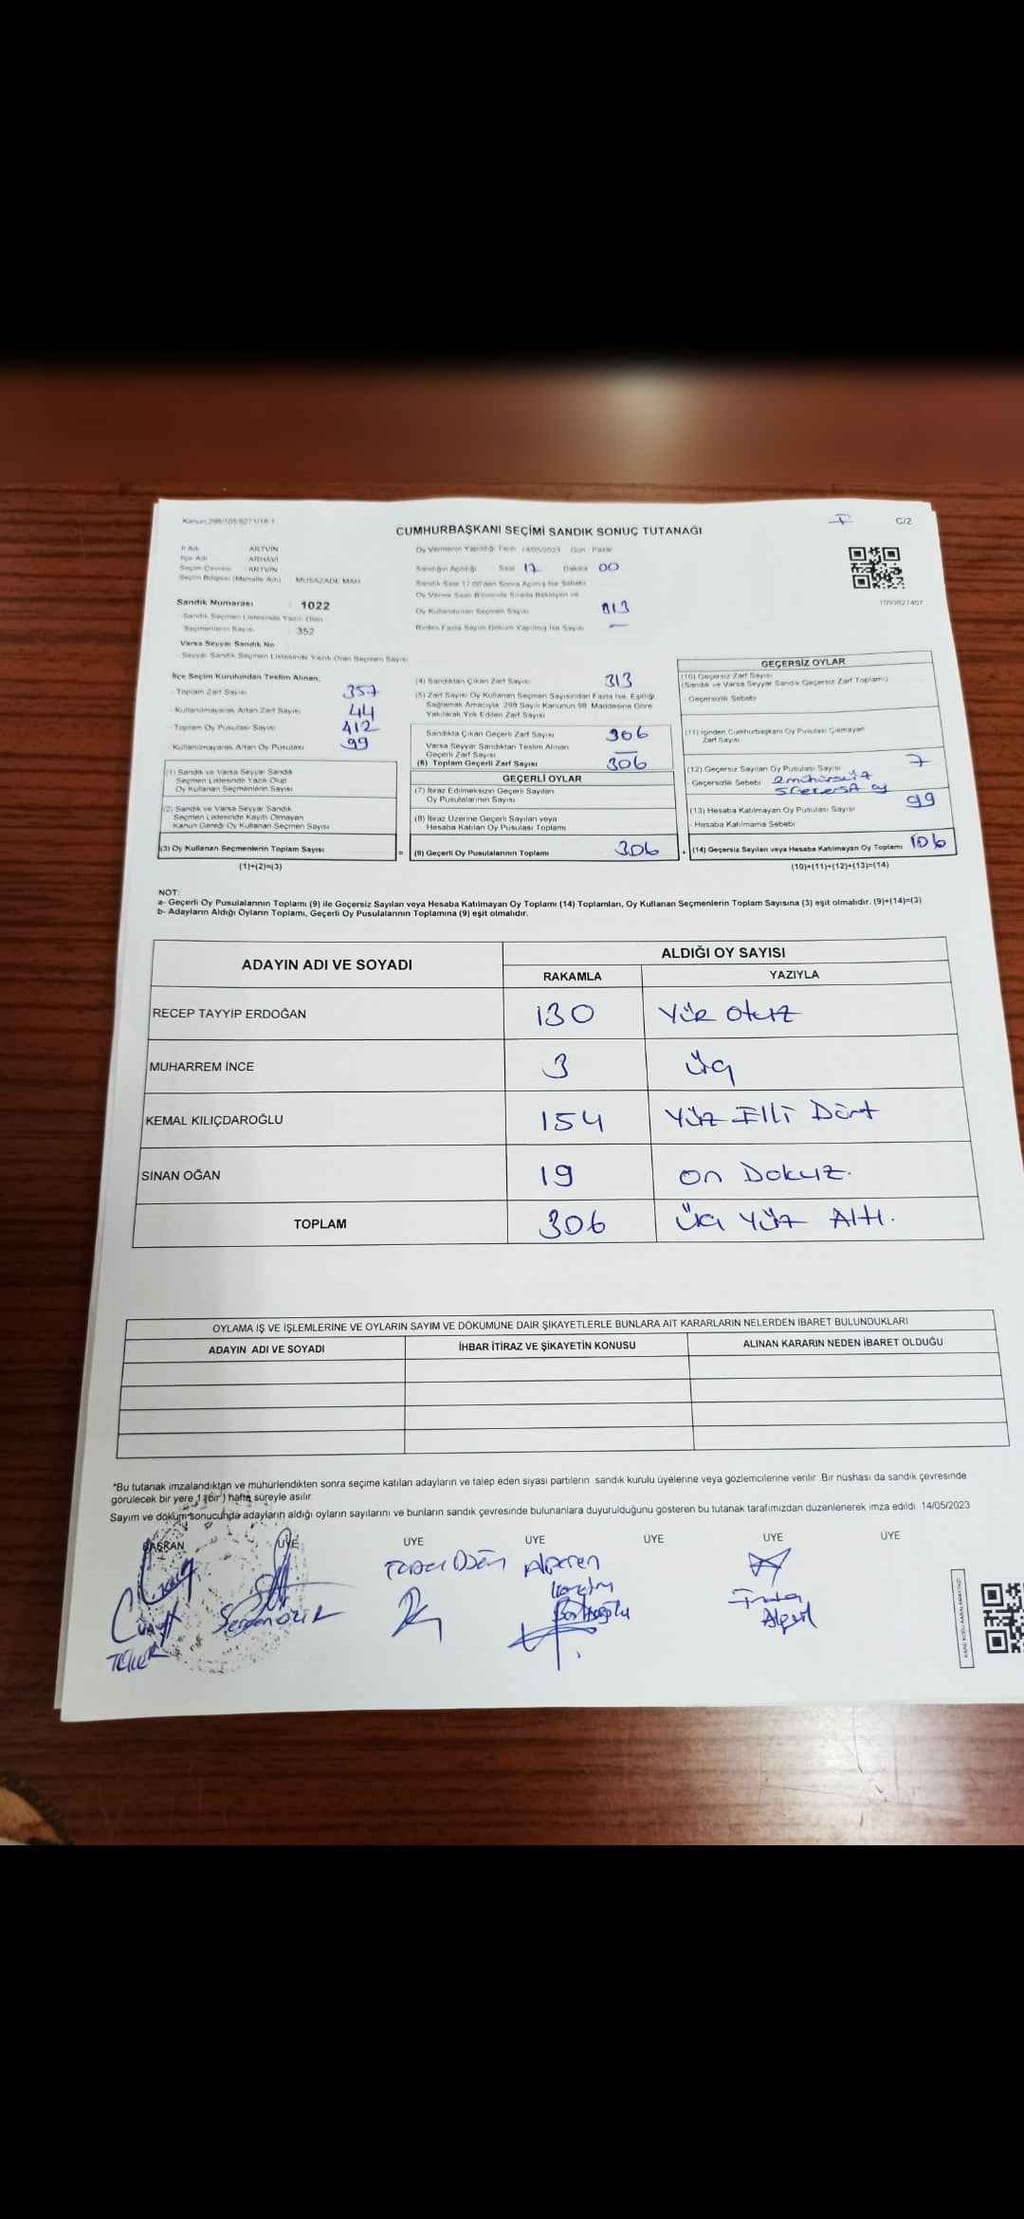 Kanun 298/105/6271/18-1
CUMHURBAŞKANI SEÇİMİ SANDIK SONUÇ TUTANAĞI
C/2
İl Adı ARTVİN
İlçe Adı ARHAVİ
Seçim Çevresi ARTVİN
Seçim Bölgesi (Mahalle Adı) MUSAZADE MAH
Sandık Numarası 1022
Sandık Seçmen Listesinde Yazılı Olan
Seçmenlerin Sayısı 352
Varsa Seyyar Sandık No
Seyyar Sandık Seçmen Listesinde Yazılı Olan Seçmen Sayısı
Oy Vermenin Yapıldığı Tarih 14/05/2023 Gün Pazar
Sandığın Açıldığı Saat 17 Dakika 00
Sandık Saat 17:00'den Sonra Açılmış İse Sebebi
Oy Verme Saati Bitiminde Sırada Bekleyen ve
Oy Kullandırılan Seçmen Sayısı 313
Birden Fazla Sayım Döküm Yapılmış İse Sayısı —
İlçe Seçim Kurulundan Teslim Alınan;
Toplam Zarf Sayısı 357
Kullanılmayarak Artan Zarf Sayısı 44
Toplam Oy Pusulası Sayısı 412
Kullanılmayarak Artan Oy Pusulası 99
(1) Sandık ve Varsa Seyyar Sandık
Seçmen Listesinde Yazılı Olup
Oy Kullanan Seçmenlerin Sayısı
(2) Sandık ve Varsa Seyyar Sandık
Seçmen Listesinde Kayıtlı Olmayan
Kanun Gereği Oy Kullanan Seçmen Sayısı
(3) Oy Kullanan Seçmenlerin Toplam Sayısı
(1)+(2)=(3)
(4) Sandıktan Çıkan Zarf Sayısı 313
(5) Zarf Sayısı Oy Kullanan Seçmen Sayısından Fazla İse, Eşitliği
Sağlamak Amacıyla, 298 Sayılı Kanunun 98. Maddesine Göre
Yakılarak Yok Edilen Zarf Sayısı
Sandıkta Çıkan Geçerli Zarf Sayısı 306
Varsa Seyyar Sandıktan Teslim Alınan
Geçerli Zarf Sayısı —
(6) Toplam Geçerli Zarf Sayısı 306
GEÇERLİ OYLAR
(7) İtiraz Edilmeksizin Geçerli Sayılan
Oy Pusulalarının Sayısı
(8) İtiraz Üzerine Geçerli Sayılan veya
Hesaba Katılan Oy Pusulası Toplamı
= (9) Geçerli Oy Pusulalarının Toplamı 306
GEÇERSİZ OYLAR
(10) Geçersiz Zarf Sayısı
(Sandık ve Varsa Seyyar Sandık Geçersiz Zarf Toplamı)
Geçersizlik Sebebi
(11) İçinden Cumhurbaşkanı Oy Pusulası Çıkmayan
Zarf Sayısı
(12) Geçersiz Sayılan Oy Pusulası Sayısı 7
Geçersizlik Sebebi
(13) Hesaba Katılmayan Oy Pusulası Sayısı 99
Hesaba Katılmama Sebebi
+ (14) Geçersiz Sayılan veya Hesaba Katılmayan Oy Toplamı 106
(10)+(11)+(12)+(13)=(14)
NOT:
a- Geçerli Oy Pusulalarının Toplamı (9) ile Geçersiz Sayılan veya Hesaba Katılmayan Oy Toplamı (14) Toplamları, Oy Kullanan Seçmenlerin Toplam Sayısına (3) eşit olmalıdır. (9)+(14)=(3)
b- Adayların Aldığı Oyların Toplamı, Geçerli Oy Pusulalarının Toplamına (9) eşit olmalıdır.
ADAYIN ADI VE SOYADI
ALDIĞI OY SAYISI
RAKAMLA YAZIYLA
RECEP TAYYİP ERDOĞAN 130 Yüz otuz
MUHARREM İNCE 3 üç
KEMAL KILIÇDAROĞLU 154 Yüz Elli Dört
SİNAN OĞAN 19 on Dokuz.
TOPLAM 306 üç Yüz Altı.
OYLAMA İŞ VE İŞLEMLERİNE VE OYLARIN SAYIM VE DÖKÜMÜNE DAİR ŞİKAYETLERLE BUNLARA AİT KARARLARIN NELERDEN İBARET BULUNDUKLARI
ADAYIN ADI VE SOYADI İHBAR İTİRAZ VE ŞİKAYETİN KONUSU ALINAN KARARIN NEDEN İBARET OLDUĞU
*Bu tutanak imzalandıktan ve mühürlendikten sonra seçime katılan adayların ve talep eden siyasi partilerin sandık kurulu üyelerine veya gözlemcilerine verilir. Bir nüshası da sandık çevresinde
görülecek bir yere 1 (bir) hafta süreyle asılır.
Sayım ve döküm sonucunda adayların aldığı oyların sayılarını ve bunların sandık çevresinde bulunanlara duyurulduğunu gösteren bu tutanak tarafımızdan düzenlenerek imza edildi. 14/05/2023
BAŞKAN ÜYE ÜYE ÜYE ÜYE ÜYE ÜYE